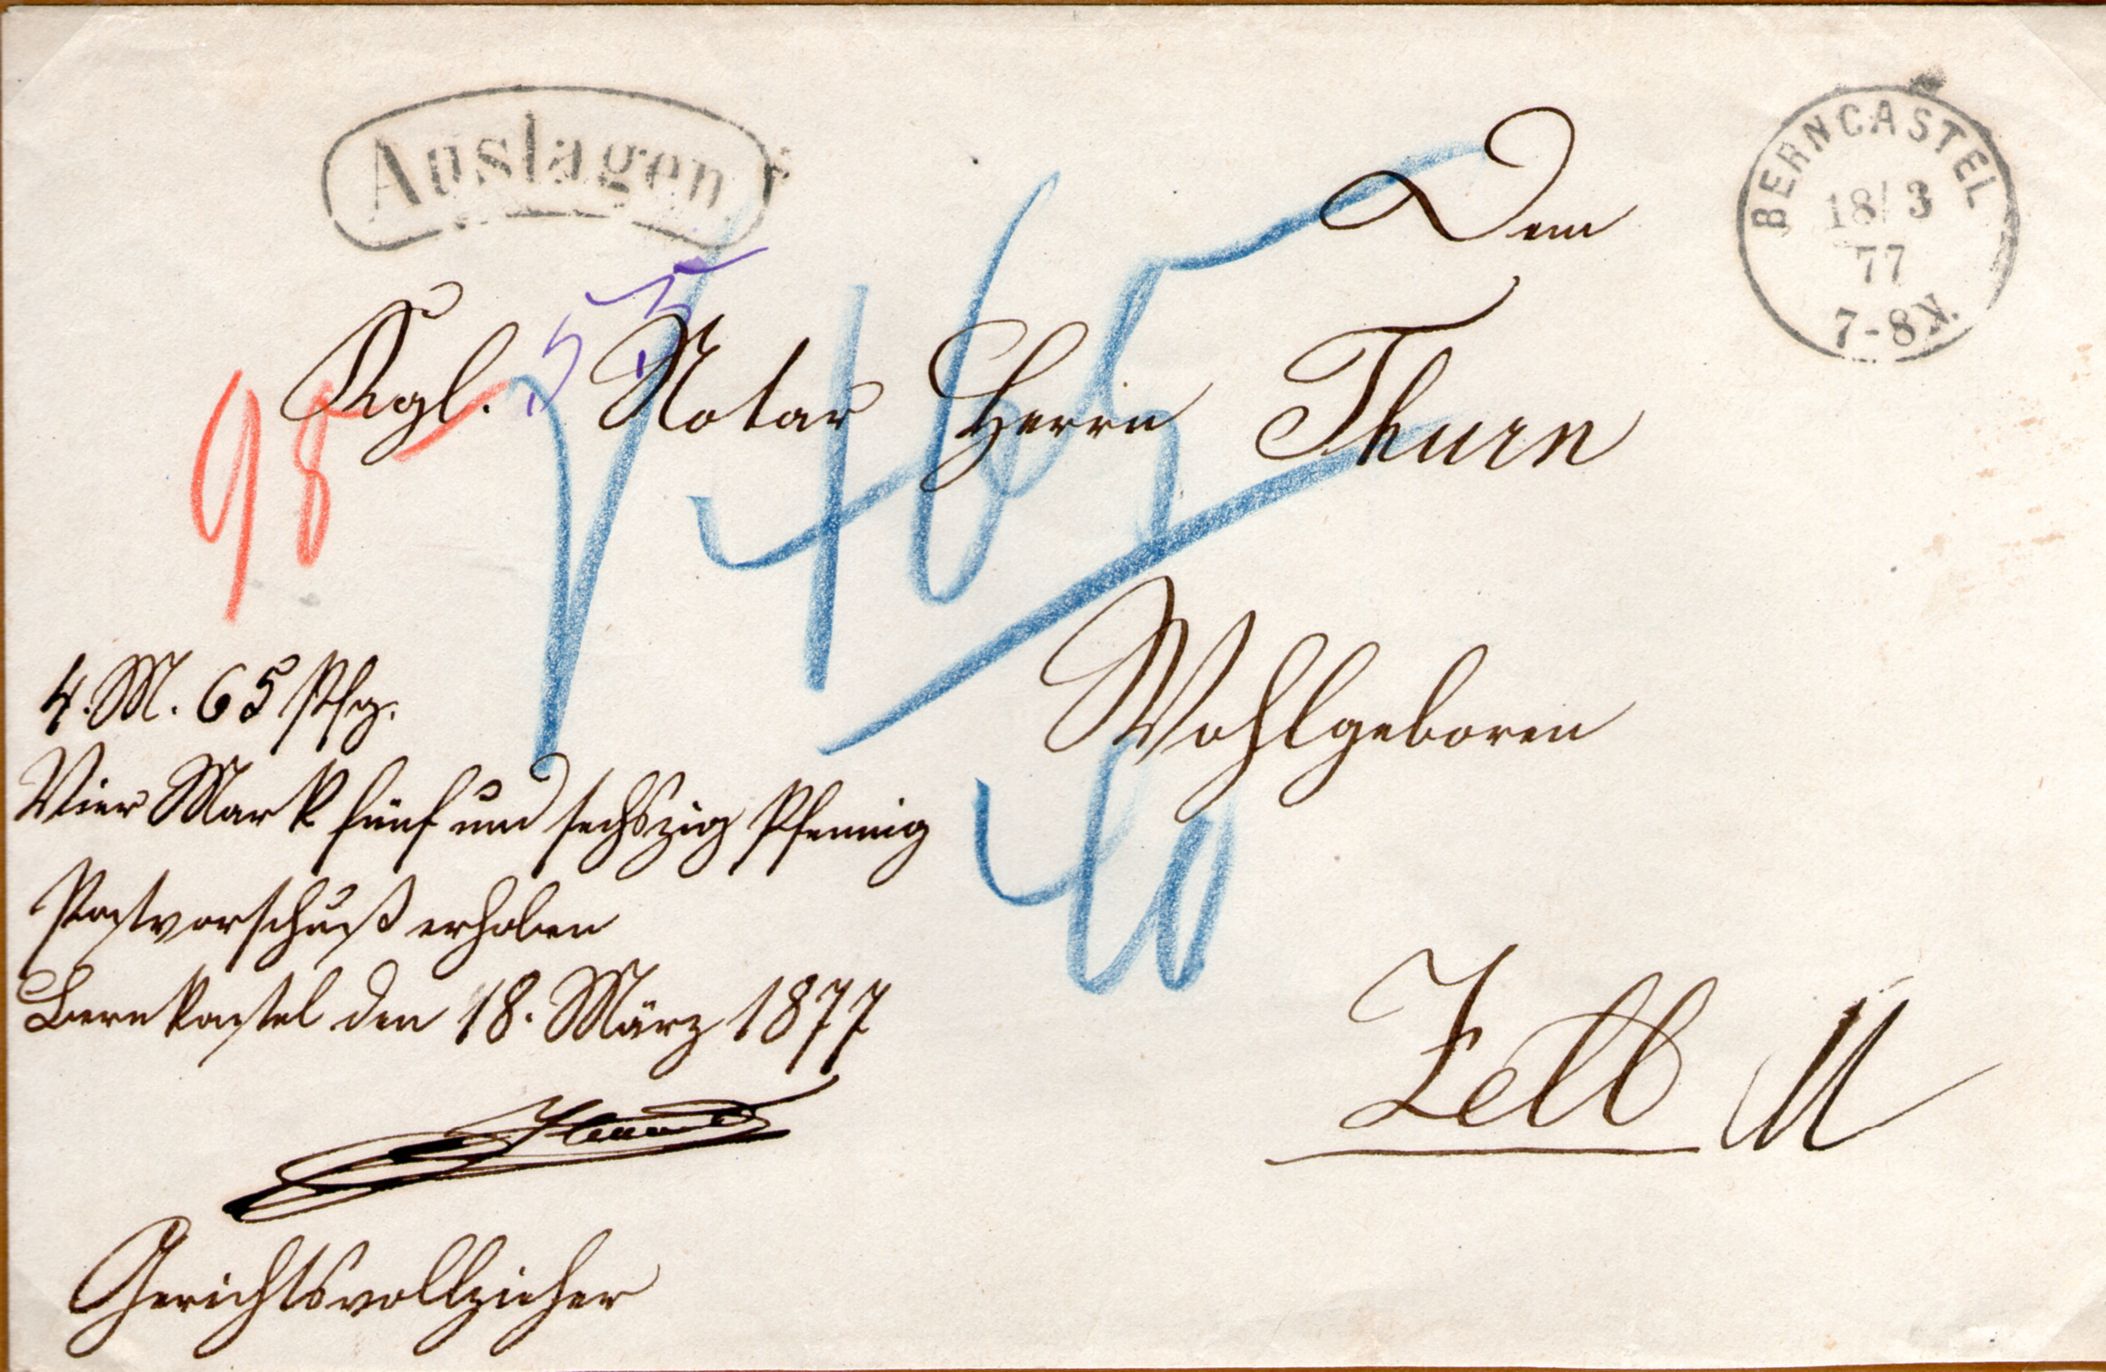 Auslagen
BERNCASTEL
18/3
77
7-8 N.
Dem
Kgl. Notar Herrn Thurn
98
465
Wohlgeboren
4. M. 65 Pfg.
Vier Mark fünf und sechszig Pfennig
Postvorschuß erhoben
Bernkastel den 18. März 1877
Zell M
Gerichtsvollzieher